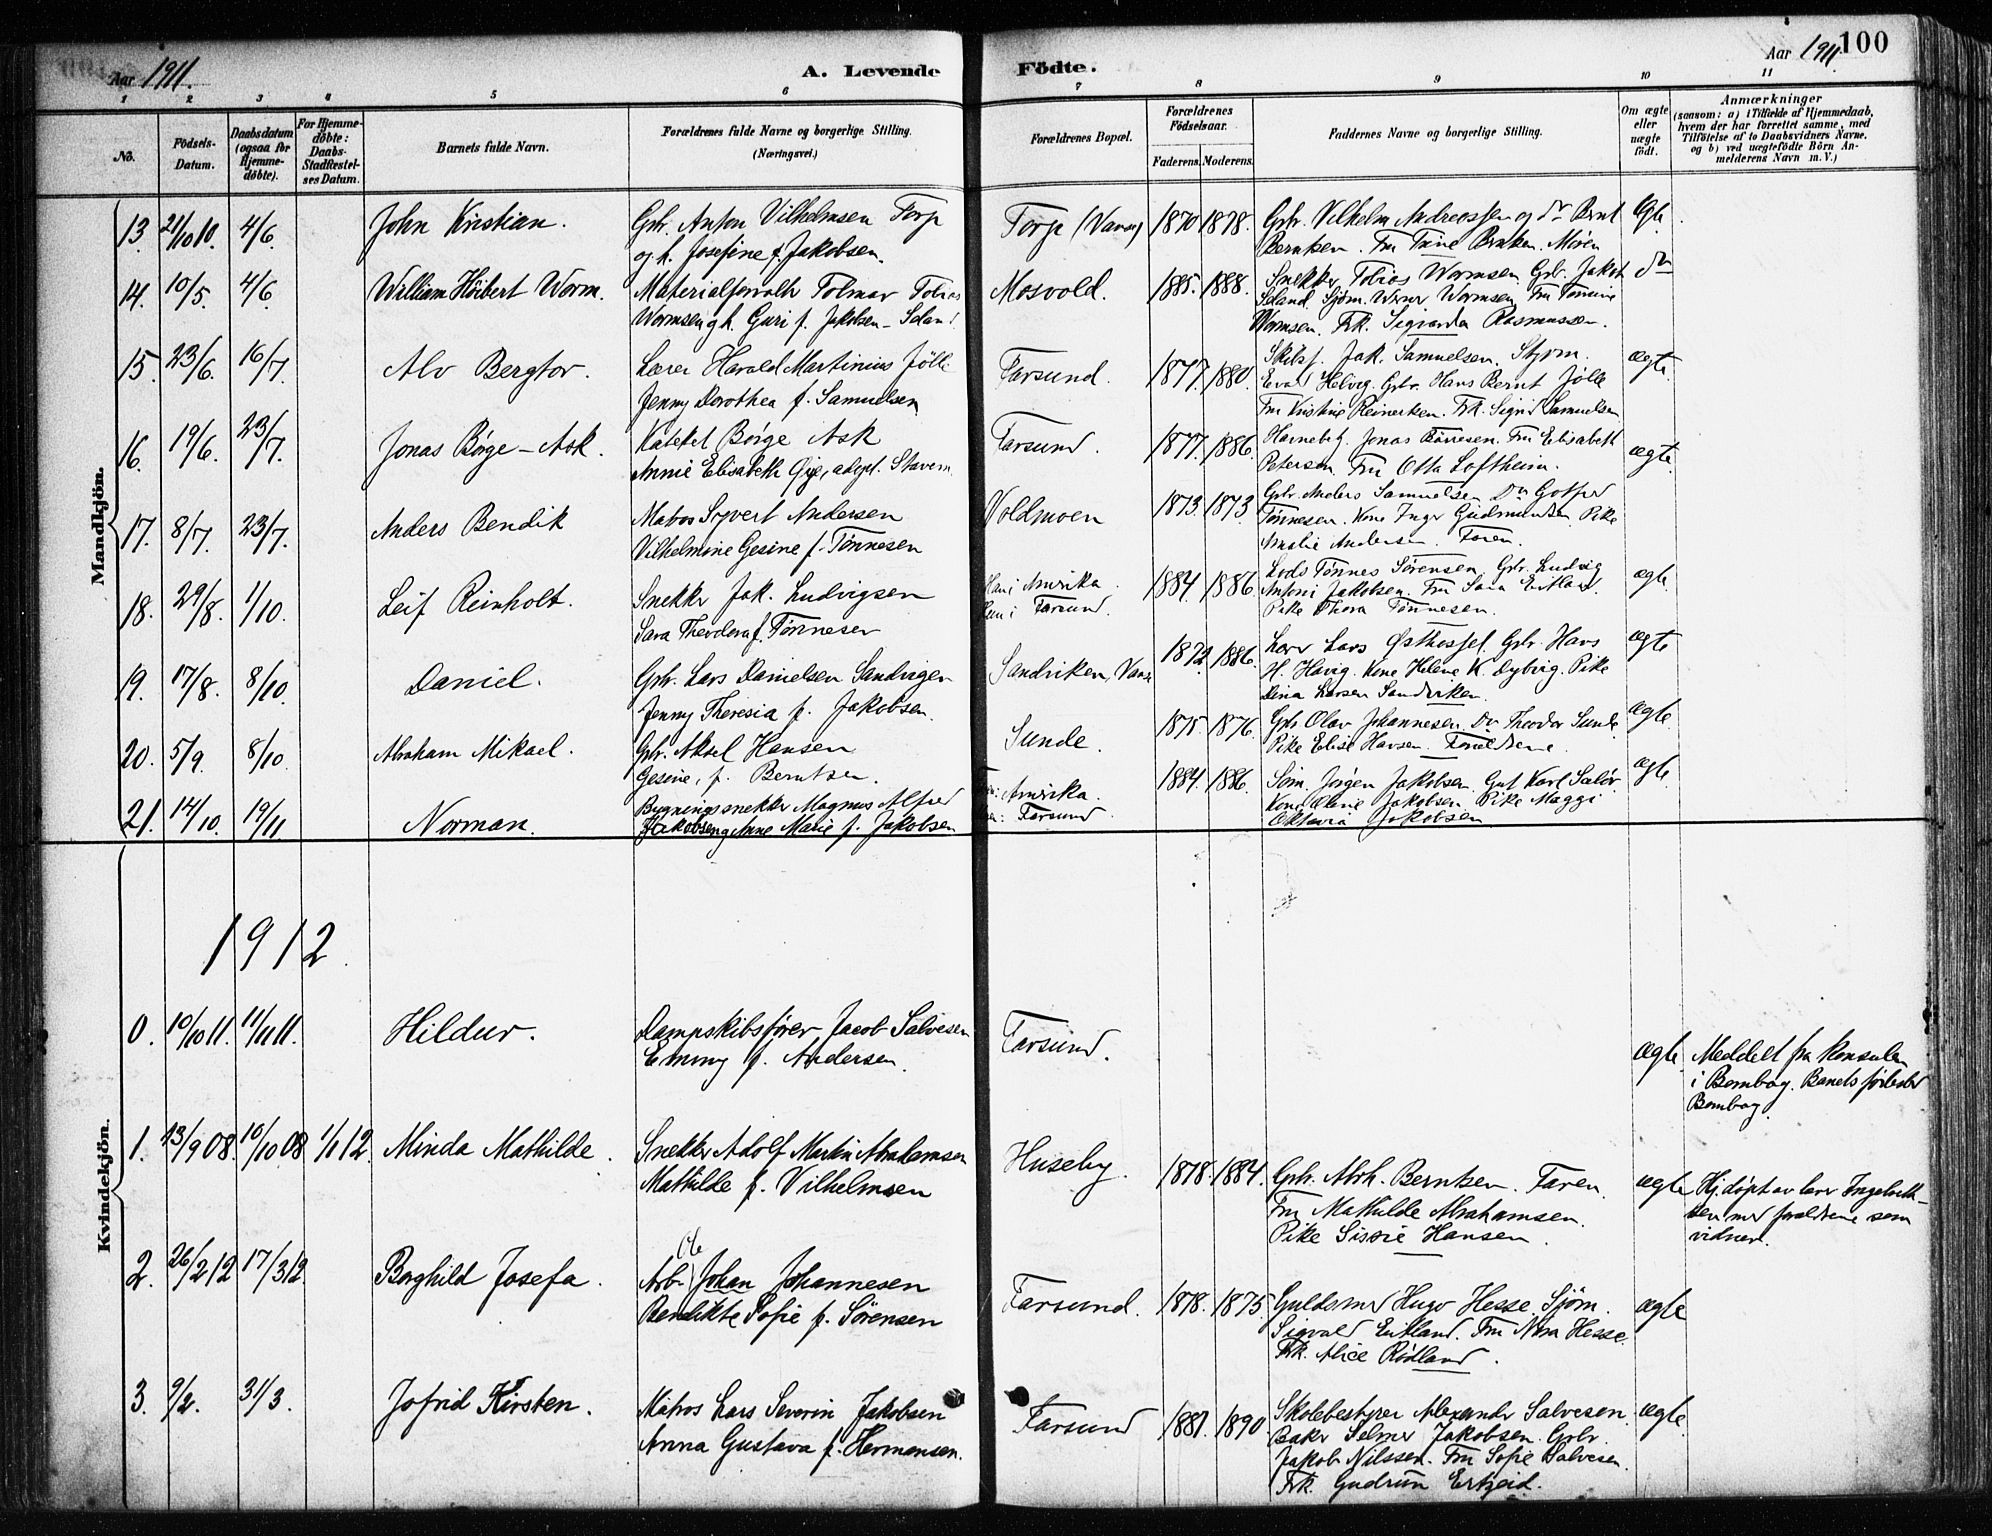 Aar 1911.
A. Levende
Födte.
Aar 1911
100
1 2 3 4 5 6 7 8 9 10 11
No.
Födsels-Datum.
Daabsdatum (ogsaa for Hjemme-döbte).
For Hjemme-döbte: Daabs-Stadfæstel-ses Datum.
Barnets fulde Navn.
Forældrenes fulde Navne og borgerlige Stilling.
(Næringsvei.)
Forældrenes Bopæl.
Forældrenes Födselsaar.
Faderens. Moderens.
Faddernes Navne og borgerlige Stilling.
Om ægte eller uægte födt.
Anmærkninger
(saasom: a) i Tilfælde af Hjemmedaab, hvem der har forrettet samme, med Tilföielse af to Daabsvidners Navne, og b) ved uægtefödte Börn An-melderens Navn m. V.)
Mandkjön.
13. 21/10 10. 4/6. John Kristian. Gbr. Anton Vilhelmsen Torp Torp (Vanse) 1870 1878. Gbr. Vilhelm Andreassen og do Bernt Ægte.
og h. Josefine f. Jakobsen. Berntsen. Fru Trine Møen
14. 10/5. 4/6 William Höibert Worm. Materialforvalter Tolmar Tobias Mosvold. 1885. 1888. Snekker Tobias Wormsen. Gbr. Jakob do
Wormsen og h. Guri f. Jakobsen - Sland. Sland. Sjöm. Werner Wormsen. Fru Tomine
Wormsen. Frk. Sigvarda Rasmussen.
15. 23/6. 16/7. Alv Bergtor. Lærer Harald Martinius Jölle Farsund. 1877. 1880. Skibsf. Jak. Samuelsen. Styrm. ægte
Jenny Dorothea f. Samuelsen Helvig. Gbr. Hans Bernt Jölle
Fru Kristine Reinertsen. Frk. Sigrid Samuelsen
16. 19/6. 23/7. Jonas Börge-Ask. Kateket Börge Ask Farsund. 1877. 1886. Havnebetj. Jonas Börresen. Fru Elisabeth ægte
Annie Elisabeth Öie, adopt. Stavem. Petersen. Fru Otta Loftheim.
17. 8/7. 23/7. Anders Bendik Matros Syvert Andersen Voldmoen 1873. 1873 Gbr. Anders Samuelsen Do Gotfred
Vilhelmine Gesine f. Tönnesen Tönnesen. Kone Inger Gudmundsen Pike
Amalie Andersen. Faren.
18. 29/8. 1/10. Leif Reinholt. Snekker Jak. Ludvigsen Han i Amerika. 1884. 1886. Lods Tönnes Sörensen. Gbr. Ludvig ægte
Sara Theodora f. Tönnesen Hun i Farsund. Antoni Jakobsen. Fru Sara Eikland.
Pike Thora Tönnesen.
19. 17/8. 8/10. Daniel. Gbr. Lars Danielsen Sandvigen Sandviken, Vanse 1872. 1886. Lærer Lars Østhassel. Gbr. Hans ægte
Jenny Theresia f. Jakobsen. H. Havig. Kone Helene K. Dybvig. Pike
Dina Larsen Sandviken.
20. 5/9. 8/10 Abraham Mikael. Gbr. Aksel Hansen Sunde. 1875. 1876. Gbr. Olav Johannesen. Do Theodor Sunde ægte
Gesine, f. Berntsen. Pike Elise Hansen. Forældrene
21. 14/10. 19/11 Norman. Bygningssnekker Magnus Alfred Amerika. 1884. 1886. Söm. Jörgen Jakobsen. Gut Karl Salör. ægte
Jakobsen og Anne Marie f. Jakobsen Farsund. Kone Olene Jakobsen. Pike Maggi
Oktavia Jakobsen
1912.
Kvindekjön.
0. 10/10 11. 11/11 11. Hildur. Dampskibsförer Jacob Salvesen Farsund. ægte Meddelt fra konsulen
Emmy f. Andersen. i Bombay. Barnets födested
Bombay.
1. 13/9 08. 10/10 08 1/1 12. Minda Mathilde. Snekker Adolf Martin Abrahamsen Huseby. 1878. 1884. Gbr. Abrh. Berntsen. Faren. ægte Hj.döpt av lærer Ingebret-
Mathilde f. Vilhelmsen Fru Mathilde Abrahamsen. sen med forældrene som
Pike Sissie Hansen. vidner.
2. 26/2 12 17/3 12 Borghild Josefa. Arb. Ole Johan Johannesen Farsund. 1878. 1875. Guldsmed Hugo Hesse. Sjöm. ægte
Bendikte Sofie f. Sörensen Sigvald Eikland. Fru Nora Hesse.
Frk. Alice Rödland.
3. 9/2. 31/3. Jofrid Kirsten. Matros Lars Severin Jakobsen Farsund 1881. 1890. Skolebestyrer Alexander Salvesen. ægte.
Anna Gustava f. Hermansen. Baker Selmer Jakobsen. Gbr.
Jakob Nilssen. Fru Sofie Salvesen.
Frk. Gudrun